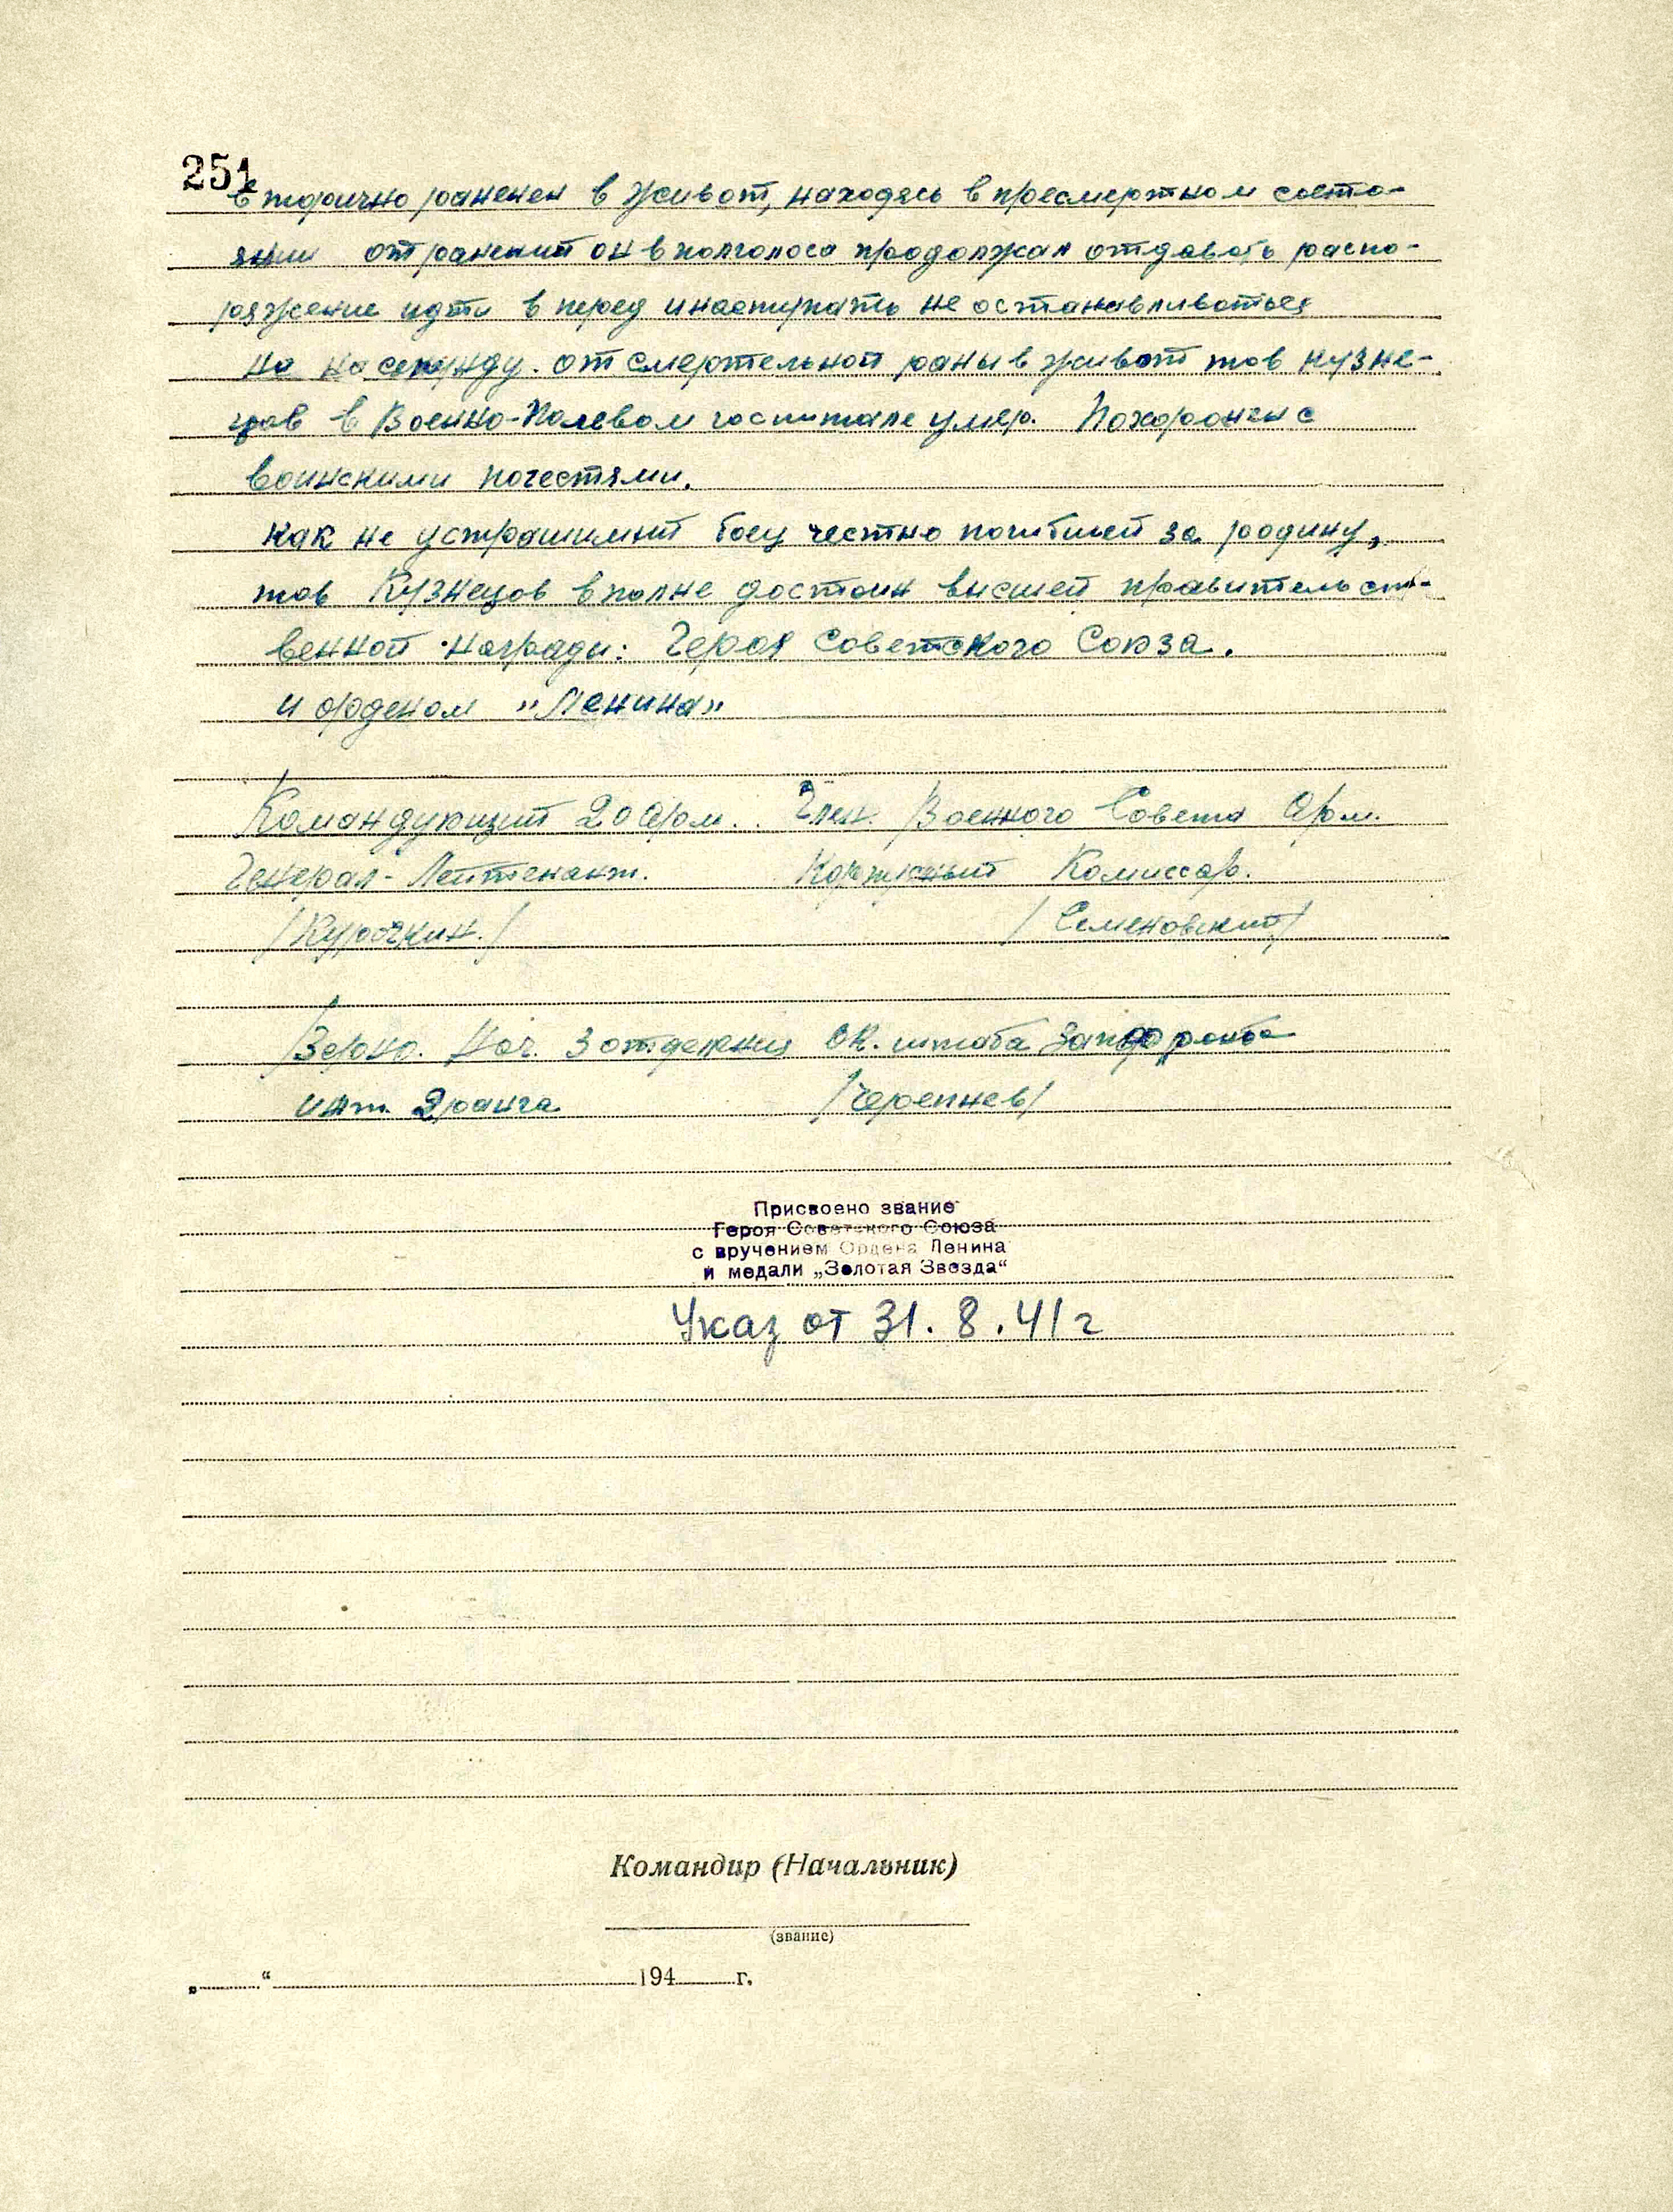 251
вторично раненен в живот, находясь в пресмертном состо-
янии от ранений он вполголоса продолжал отдавать распо-
ряжение идти в перед и наступать не останавливаться
на на секунду. от смертельной раны в живот тов Кузне-
цов в Военно-Полевом госпитале умер. Похоронен с
воинскими почестями.
Как не устрашимый боец честно погибшей за родину,
тов Кузнецов вполне достоин высшей правительст-
венной награды: Героя Советского Союза.
и орденом "Ленина"
Командующий 20 Арм. Член Военного Совета Арм.
Генерал-Лейтенант. Корпусный Комиссар.
/Курочкин./ /Семеновский/
Верно. Нач. 3 отделения ОК. штаба Запфронта
инт. 2 ранга /Черепнев/
Присвоено звание
Героя Советского Союза
с вручением Ордена Ленина
и медали „Золотая Звезда“
Указ от 31.8.41г
Командир (Начальник)
(звание)
„ “ 194 г.